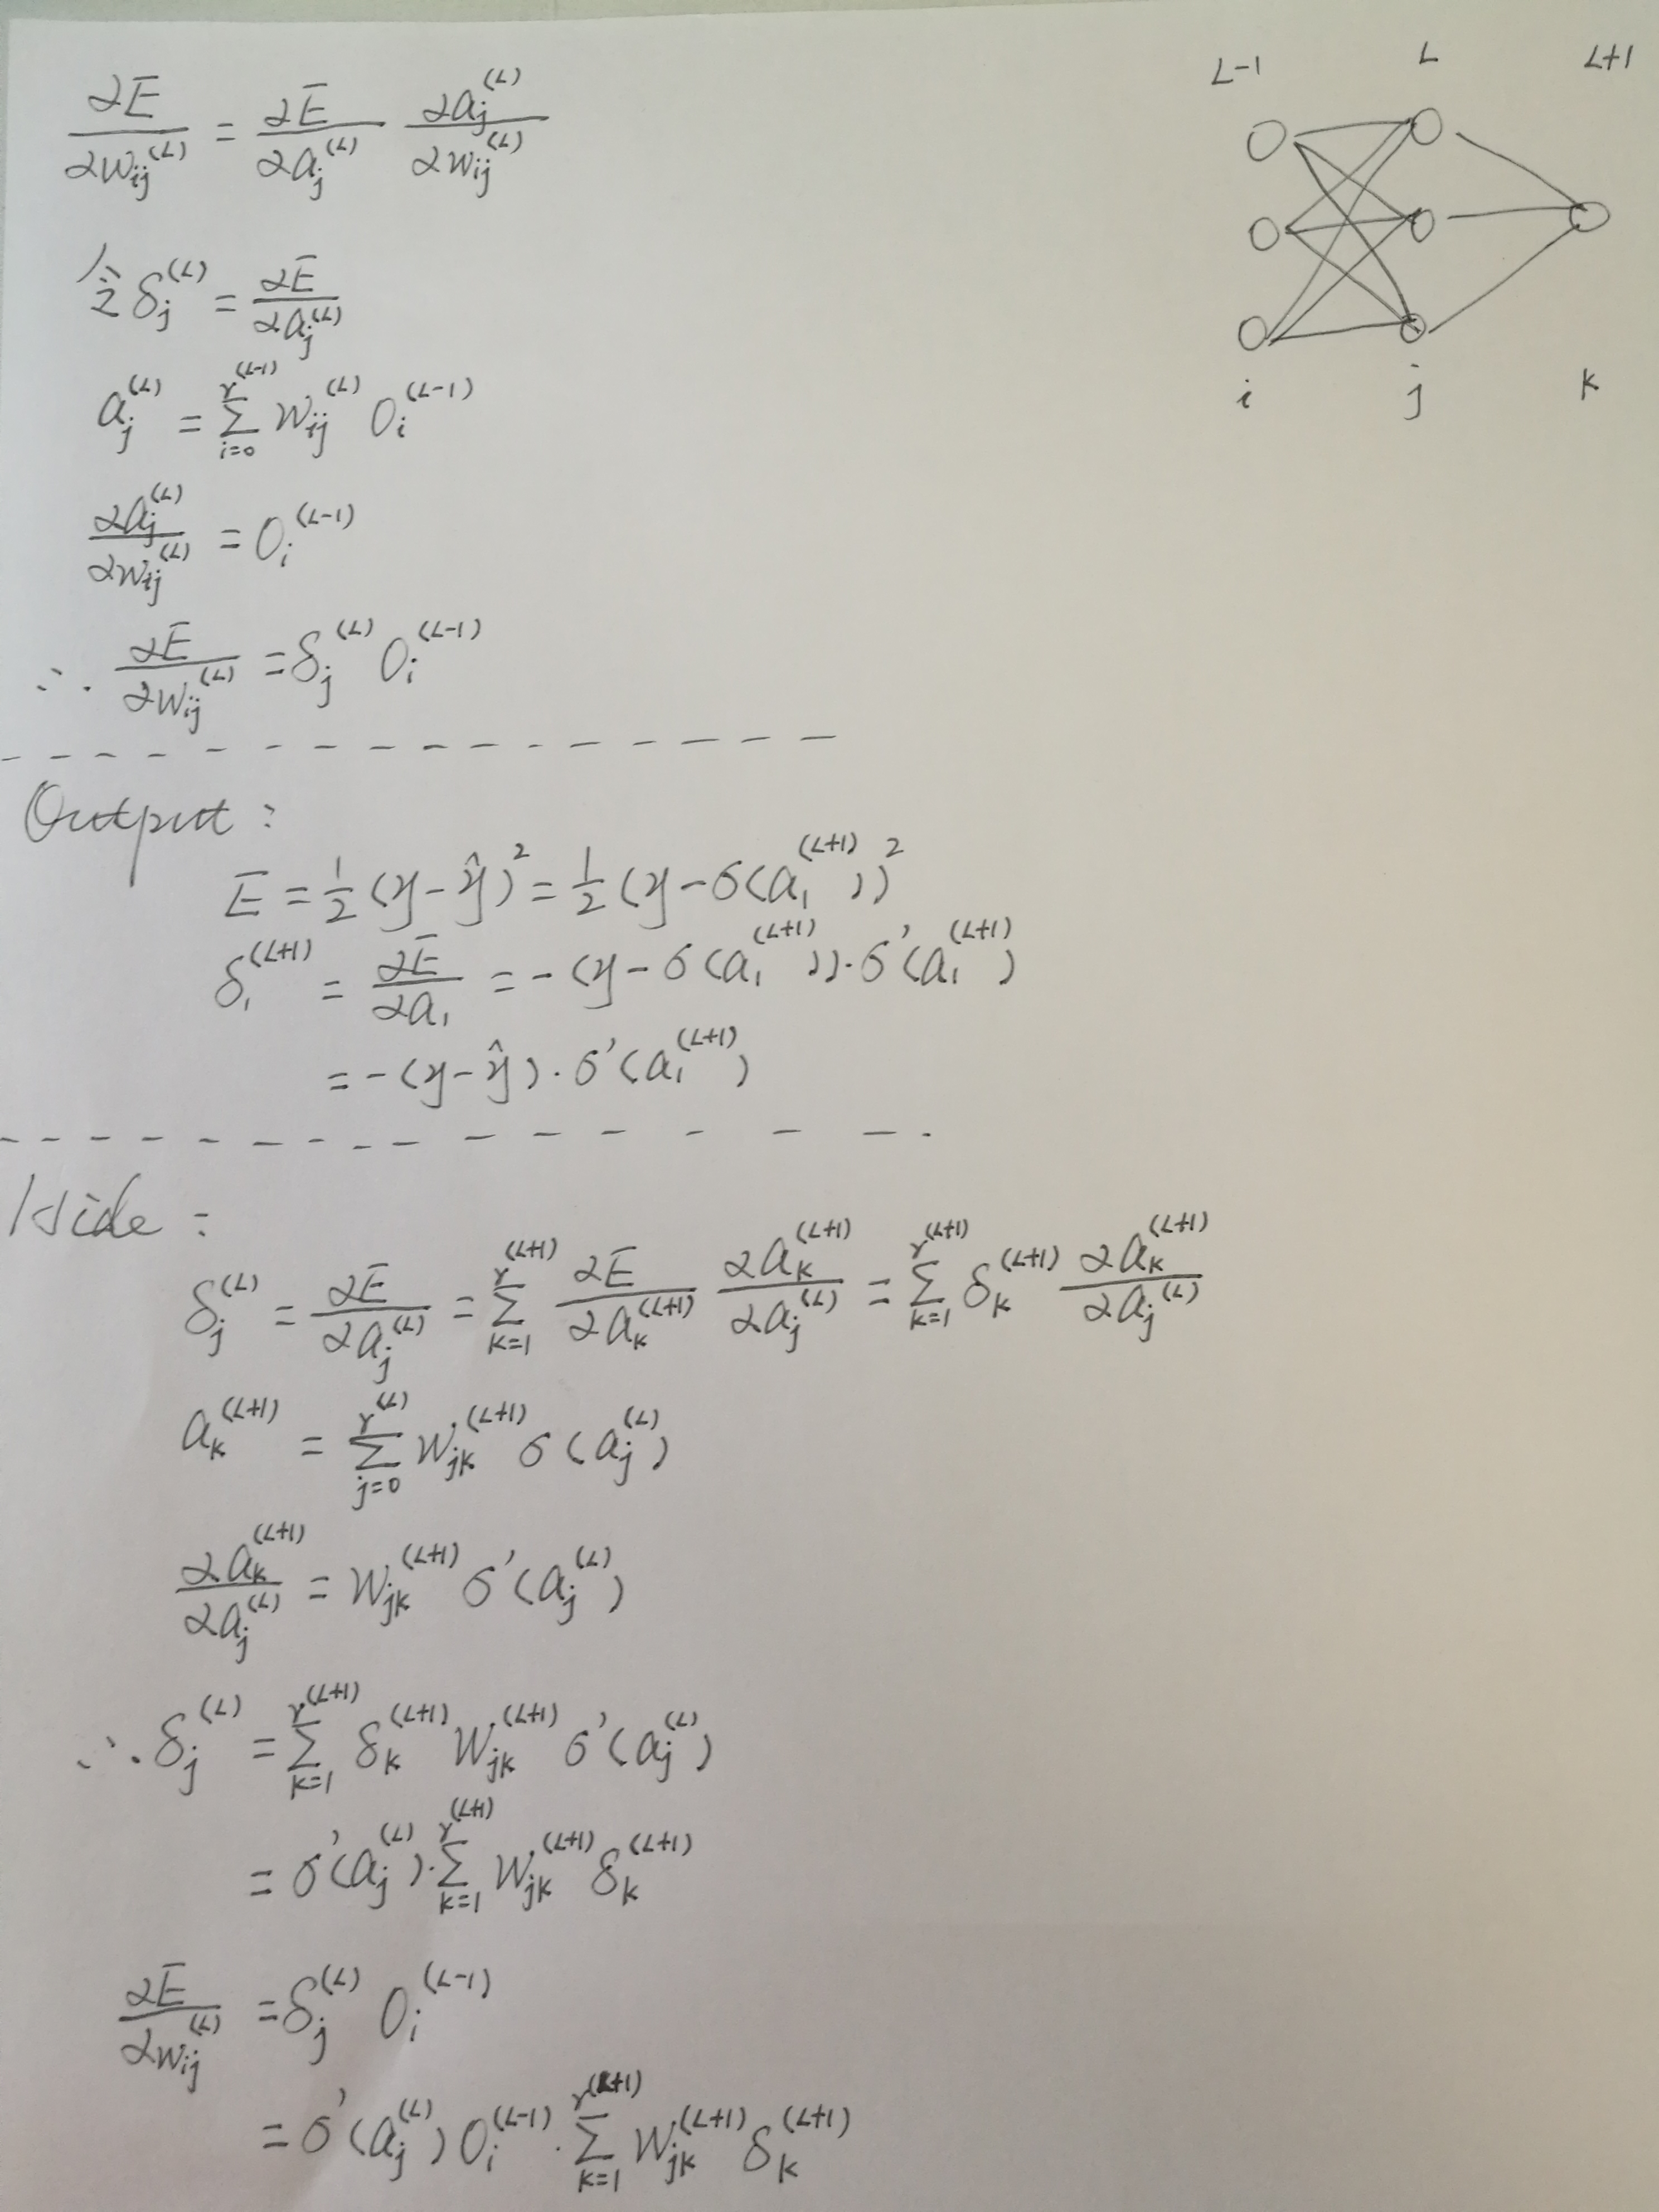 L-1 L L+1
∂E/∂w_ij^(L) = ∂E/∂a_j^(L) ∂a_j^(L)/∂w_ij^(L)
令 δ_j^(L) = ∂E/∂a_j^(L)
a_j^(L) = Σ_{i=0}^{r^(L-1)} w_ij^(L) O_i^(L-1)
i j k
∂a_j^(L)/∂w_ij^(L) = O_i^(L-1)
∴ ∂E/∂w_ij^(L) = δ_j^(L) O_i^(L-1)
Output:
E = 1/2 (y-ŷ)^2 = 1/2 (y-σ(a_1^(L+1)))^2
δ_1^(L+1) = ∂E/∂a_1 = -(y-σ(a_1^(L+1)))·σ'(a_1^(L+1))
= -(y-ŷ)·σ'(a_1^(L+1))
Hide:
δ_j^(L) = ∂E/∂a_j^(L) = Σ_{k=1}^{r^(L+1)} ∂E/∂a_k^(L+1) ∂a_k^(L+1)/∂a_j^(L) = Σ_{k=1}^{r^(L+1)} δ_k^(L+1) ∂a_k^(L+1)/∂a_j^(L)
a_k^(L+1) = Σ_{j=0}^{r^(L)} w_jk^(L+1) σ(a_j^(L))
∂a_k^(L+1)/∂a_j^(L) = w_jk^(L+1) σ'(a_j^(L))
∴ δ_j^(L) = Σ_{k=1}^{r^(L+1)} δ_k^(L+1) w_jk^(L+1) σ'(a_j^(L))
= σ'(a_j^(L))·Σ_{k=1}^{r^(L+1)} w_jk^(L+1) δ_k^(L+1)
∂E/∂w_ij^(L) = δ_j^(L) O_i^(L-1)
= σ'(a_j^(L)) O_i^(L-1)·Σ_{k=1}^{r^(L+1)} w_jk^(L+1) δ_k^(L+1)